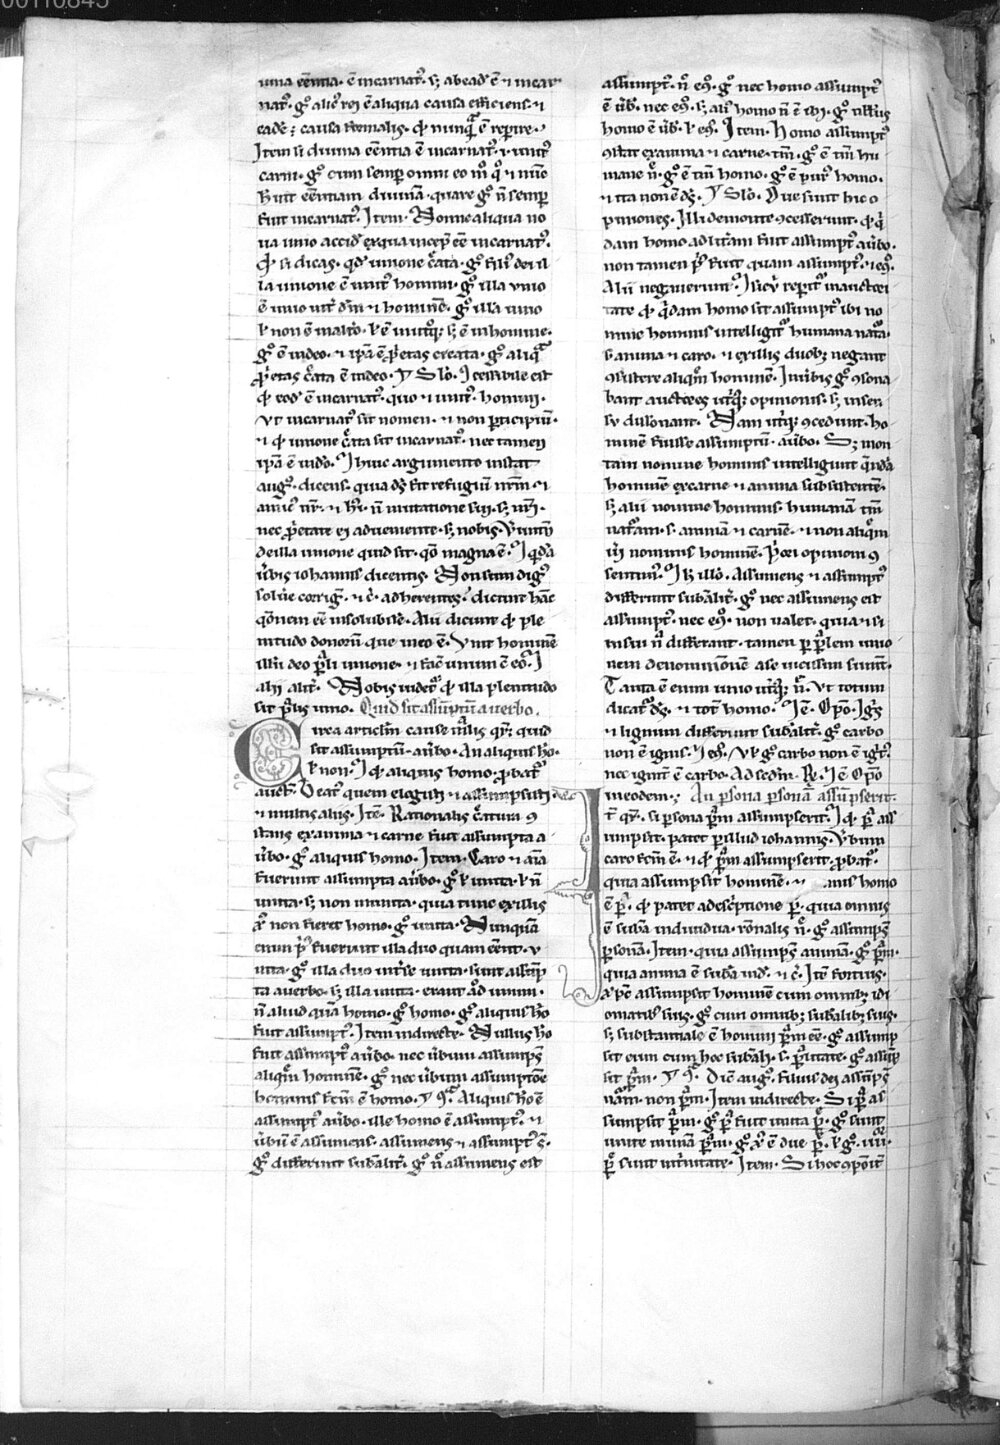 00110845
una eentia. ē incarnat᷒. s; ab ead̄ ē ⁊ incar
nat᷒. gͦ alicͦ rei ē aliqua causa efficiens. ⁊
eadē causa formalis. qd̄ nunq̄ ē reperire.
Item si diuina eentia ē incarnat᷒. ⁊ unit᷒
carni. gͦ cum semꝑ omni eo mͦ qͦ ⁊ nūc
h̄uit eentiam diuinā. quare gͦ n̄ semꝑ
fuit incarnat᷒. Item. Nonne aliqua no
ua unio accid̄ ex qua incep̄ ēē incarnat᷒.
qd̄ si dicas. qd̄ unione c̄ata. gͦ fili᷒ dei il
la unione ē unit᷒ homini. gͦ illa unio
ē unio int̄ dm̄ ⁊ hominē. gͦ illa unio
ł non ē in alt̄o. ł ē in ut̄qꝫ. s; ē in homine.
gͦ ē in deo. ⁊ ip̄a ē ꝓp̄etas creata. gͦ aliq̄
ꝓp̄etas c̄ata ē in deo. Solͦ. Jcessibile est
qd̄ eod̄ ē incarnat᷒. quo ⁊ unit᷒. homini.
Vt incarnat᷒ sit nomen. ⁊ non participiū.
⁊ qd̄ unione c̄ata sit incarnat᷒. nec tamen
ip̄a ē in dō. Huic argumento instat
augͦ. dicens. quia ds̄ fit refugiū nr̄m ⁊
amic᷒ nr̄. ⁊ hͦ. n̄ mutatione sui. s; nr̄i.
nec ꝓp̄etate ei adueniente. s; nobis. Verūtn̄
de illa unione quid sit. qōo magna ē. q̄dā
u̅bis iohannis dicentis. Non sum dign᷒
solue᷒ corrig̅. ⁊ c̄. adherentes. dicunt hāc
q̄onem ēē insolubilē. Alii dicunt qd̄ ple
nitudo donorū que in eo ē. Vnit hominē
illū deo p̄li unione. ⁊ fac̄ unum ē eo.
alii alit̄. Nobis uidet᷒ qd̄ illa plenitudo
sit p̄lis unio. Quid sit assūptū a uerbo.
Circa articlm̄ cause mͣlis qr̄. quid
sit assumptū. a u̅bo. An aliquis hͦ.
ł non. qd̄ aliquis homo. ꝓbat᷒
auct̄. Beat᷒ quem elegisti ⁊ assumpsisti.
⁊ multis aliis. Itē. Rationalis c̄atura
stans ex anima ⁊ carne fuit assumpta a
u̅bo. gͦ aliquis homo. Item. Caro ⁊ aīa
fuerunt assumpta a u̅bo. gͦ ł unita. ł n̄
unita. s; non inunita. quia tunc ex illis
non fieret homo. gͦ unita. Nunquā
enim p᷒ fuerunt illa duo quam ēēnt. v
nita. gͦ illa duo int̄ se unita. sunt assūp
ta a uerbo. s; illa unita. erant ad inuin.
n̄ aliud quā homo. gͦ homo. gͦ aliquis hͦ
fuit assumpt᷒. Item indirecte. Nullus hͦ
fuit assumpt᷒ a u̅bo. nec u̅bum assumpsͥ
aliqm̄ hominē. gͦ nec u̅bum assumptōe
hominis fcm̄ ē homo. Aliquis hͦ ē
assumpt᷒ a u̅bo. ille homo ē assumpt᷒. ⁊
u̅bū ē assumens. assumens ⁊ assumpt᷒
gͦ differunt sub̄alit̄. gͦ n̄ assumens est
assumpt᷒. n̄ eͦ. gͦ nec homo assumpt᷒
ē u̅b. nec eͦ. s; ali᷒ homo n̄ ē ibi. gͦ null᷒
homo ē u̅b. ł eͦ. Item. Homo assumpt᷒
ꝯstat ex anima ⁊ carne. tm̄. gͦ ē tm̄ hu
mane nͤ. gͦ ē tm̄ homo. gͦ ē pur᷒ homo.
⁊ ita non ē ds̄. Solͦ. Due sunt hic o
piniones. Illi de monte ꝯcesserunt. qd̄ q̄
dam homo ad lit̄am fuit assumpt᷒ a u̅bo.
non tamen p᷒ fuit quam assumpt᷒. ⁊ eͦ.
Alii negauerunt. Sicubi reperit᷒ in auctori
tate qd̄ q̄dam homo sit assumpt᷒. ibi no
mine hominis intelligit᷒ humana naͣ.
s. anima ⁊ caro. ⁊ ex illis duob; negant
ꝯsistere aliqm̄ hominē. In u̅bis gͦ ꝯsona
bant auctores ut̄qꝫ opinionis. s; in sen
su dissonant. Nam ut̄qꝫ ꝯcedunt. ho
minē fuisse assumptū. a u̅bo. S; mon
tani nomine hominis intelligunt q̄ndā
hominē ex carne ⁊ anima subsistentē.
s; alii nomine hominis. humanā tm̄
naͣm. s. animā ⁊ carnē. ⁊ non aliqm̄
hominē. P̄ori opinioni ꝯ
sentim᷒. illͦ. Assumens ⁊ assumpt᷒
differunt sub̄alit̄. gͦ nec assumens est
assumpt᷒. nec eͦ. non ualet. quia ⁊ si
in sui n̄ differant. tamen p̄ p̄plem unio
nem denominationē a se inuicem sumūt.
Tanta ē enim unio ut̄qꝫ nͤ. Vt totum
dicat᷒ ds̄. ⁊ tot᷒ homo. Iē. Opͦo. Ignis
⁊ lignum differunt sub̄alit̄. gͦ carbo
non ē ignis. ⁊ eͦ. Vł gͦ carbo non ē ignit᷒.
nec ignit᷒ ē carbo. Ad scdm̄. R̄. Iē Opͦo
in eodem. An p̄sona p̄sonā assūpserit.
It̄ qr̄. si p̄sona p̄sonam assumpserit. qd̄ p̄ ass
umpsit. patet p̄ illud iohannis. Verbum
caro fcm̄ ē. ⁊ qd̄ p̄m assumpserit. ꝓbat᷒.
quia assumpsit hominē. ⁊ omnis homo
ē p̄. qd̄ patet a desc̄ptione p̄. quia omnis
ē sub̄a indiuidua. rōnalis nͤ. gͦ assumpsͥ
p̄sonā. Item. quia assumpsͥ animā. gͦ p̄m.
quia anima ē sub̄a ind̄. ⁊ c̄. Itē fortius.
xp̄c assumpsit hominē cum omnib; idi
omatib; suis. gͦ cum omnib; sub̄alib; suis.
s; substantiale ē homini p̄m ēē. gͦ assump
sit eum cum hoc sub̄ali. s. p̄litate. gͦ assūp
sit p̄m. Dic̄ augͦ. Filius dei assūpsͥ
nͣm. non p̄m. Item indirecte. Si p̄ as
sumpsit p̄m. gͦ p̄ fuit unita p̄. gͦ sunt
unite in unā p̄m. gͦ xͦ ē due p̄. ł gͦ. iiii.
p̄ sunt in t̄nitate. Item. Si hoc ꝯponit᷒